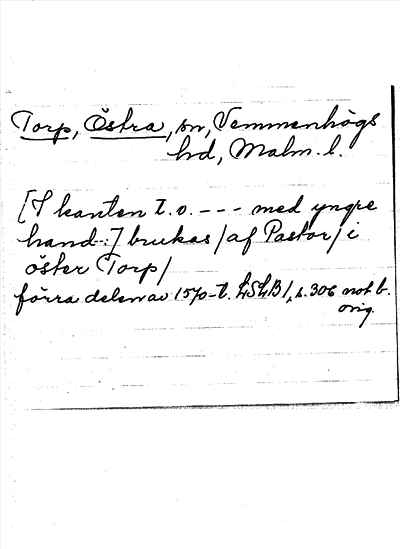 Torp, Östra, sn, Vemmenhögs
hd, Malm. l.
[I kanten t. o. --- med yngre
hand:] brukas / af Pastor / i
öster Torp /
förra delen av 1570-t. LSLB /, s. 306 not b.
orig.